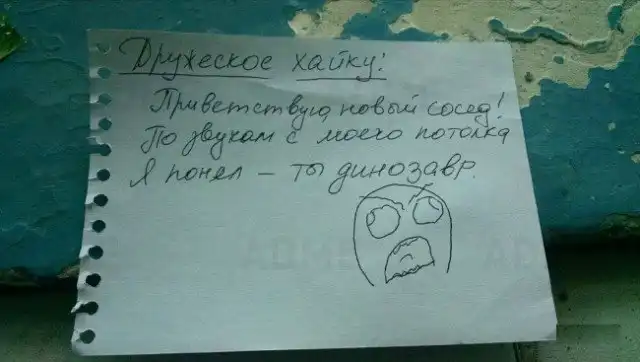 Дружеское хайку:
Приветствую, новый сосед!
По звукам с моего потолка
Я понял – ты динозавр.